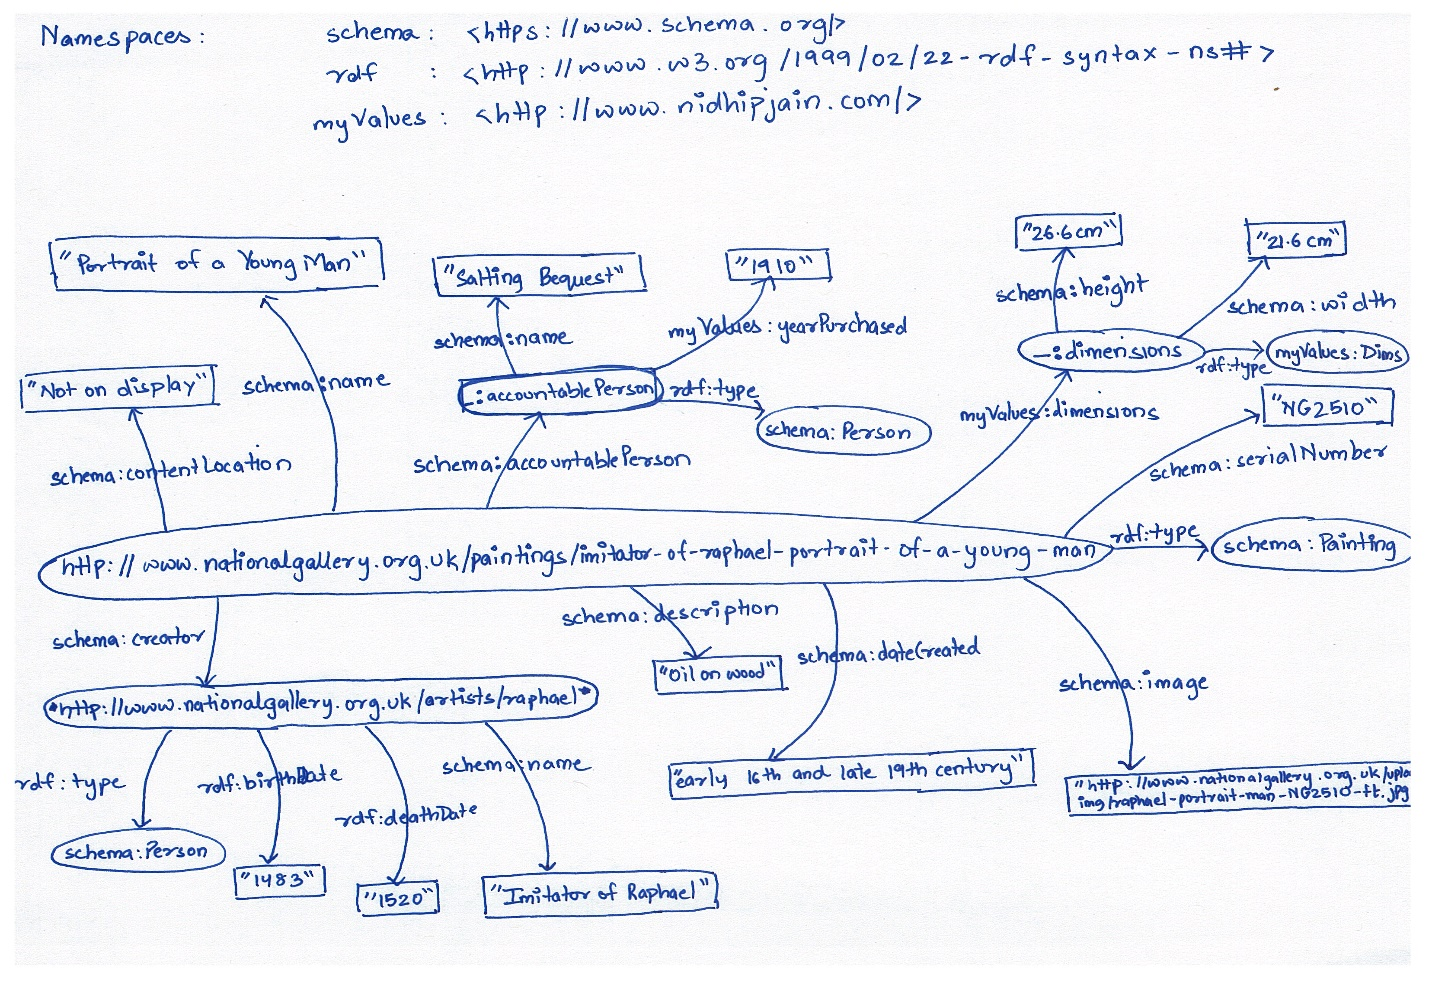 Namespaces: schema: <https://www.schema.org/>
rdf : <http://www.w3.org/1999/02/22-rdf-syntax-ns#>
myValues: <http://www.nidhipjain.com/>
"26.6cm"
"21.6 cm"
"Portrait of a Young Man"
"Salting Bequest"
"1910"
schema:height
schema:width
schema:name
myValues:yearPurchased
_:dimensions
rdf:type
myValues:Dims
"Not on display"
schema:name
_:accountablePerson
rdf:type
schema:Person
myValues:dimensions
"NG2510"
schema:contentLocation
schema:accountablePerson
schema:serialNumber
http://www.nationalgallery.org.uk/paintings/imitator-of-raphael-portrait-of-a-young-man
rdf:type
schema:Painting
schema:creator
schema:description
"Oil on wood"
schema:dateCreated
schema:image
"http://www.nationalgallery.org.uk/artists/raphael"
rdf:type
rdf:birthDate
rdf:deathDate
schema:name
"early 16th and late 19th century"
"http://www.nationalgallery.org.uk/uplo
img/raphael-portrait-man-NG2510-ft.jpg
schema:Person
"1483"
"1520"
"Imitator of Raphael"